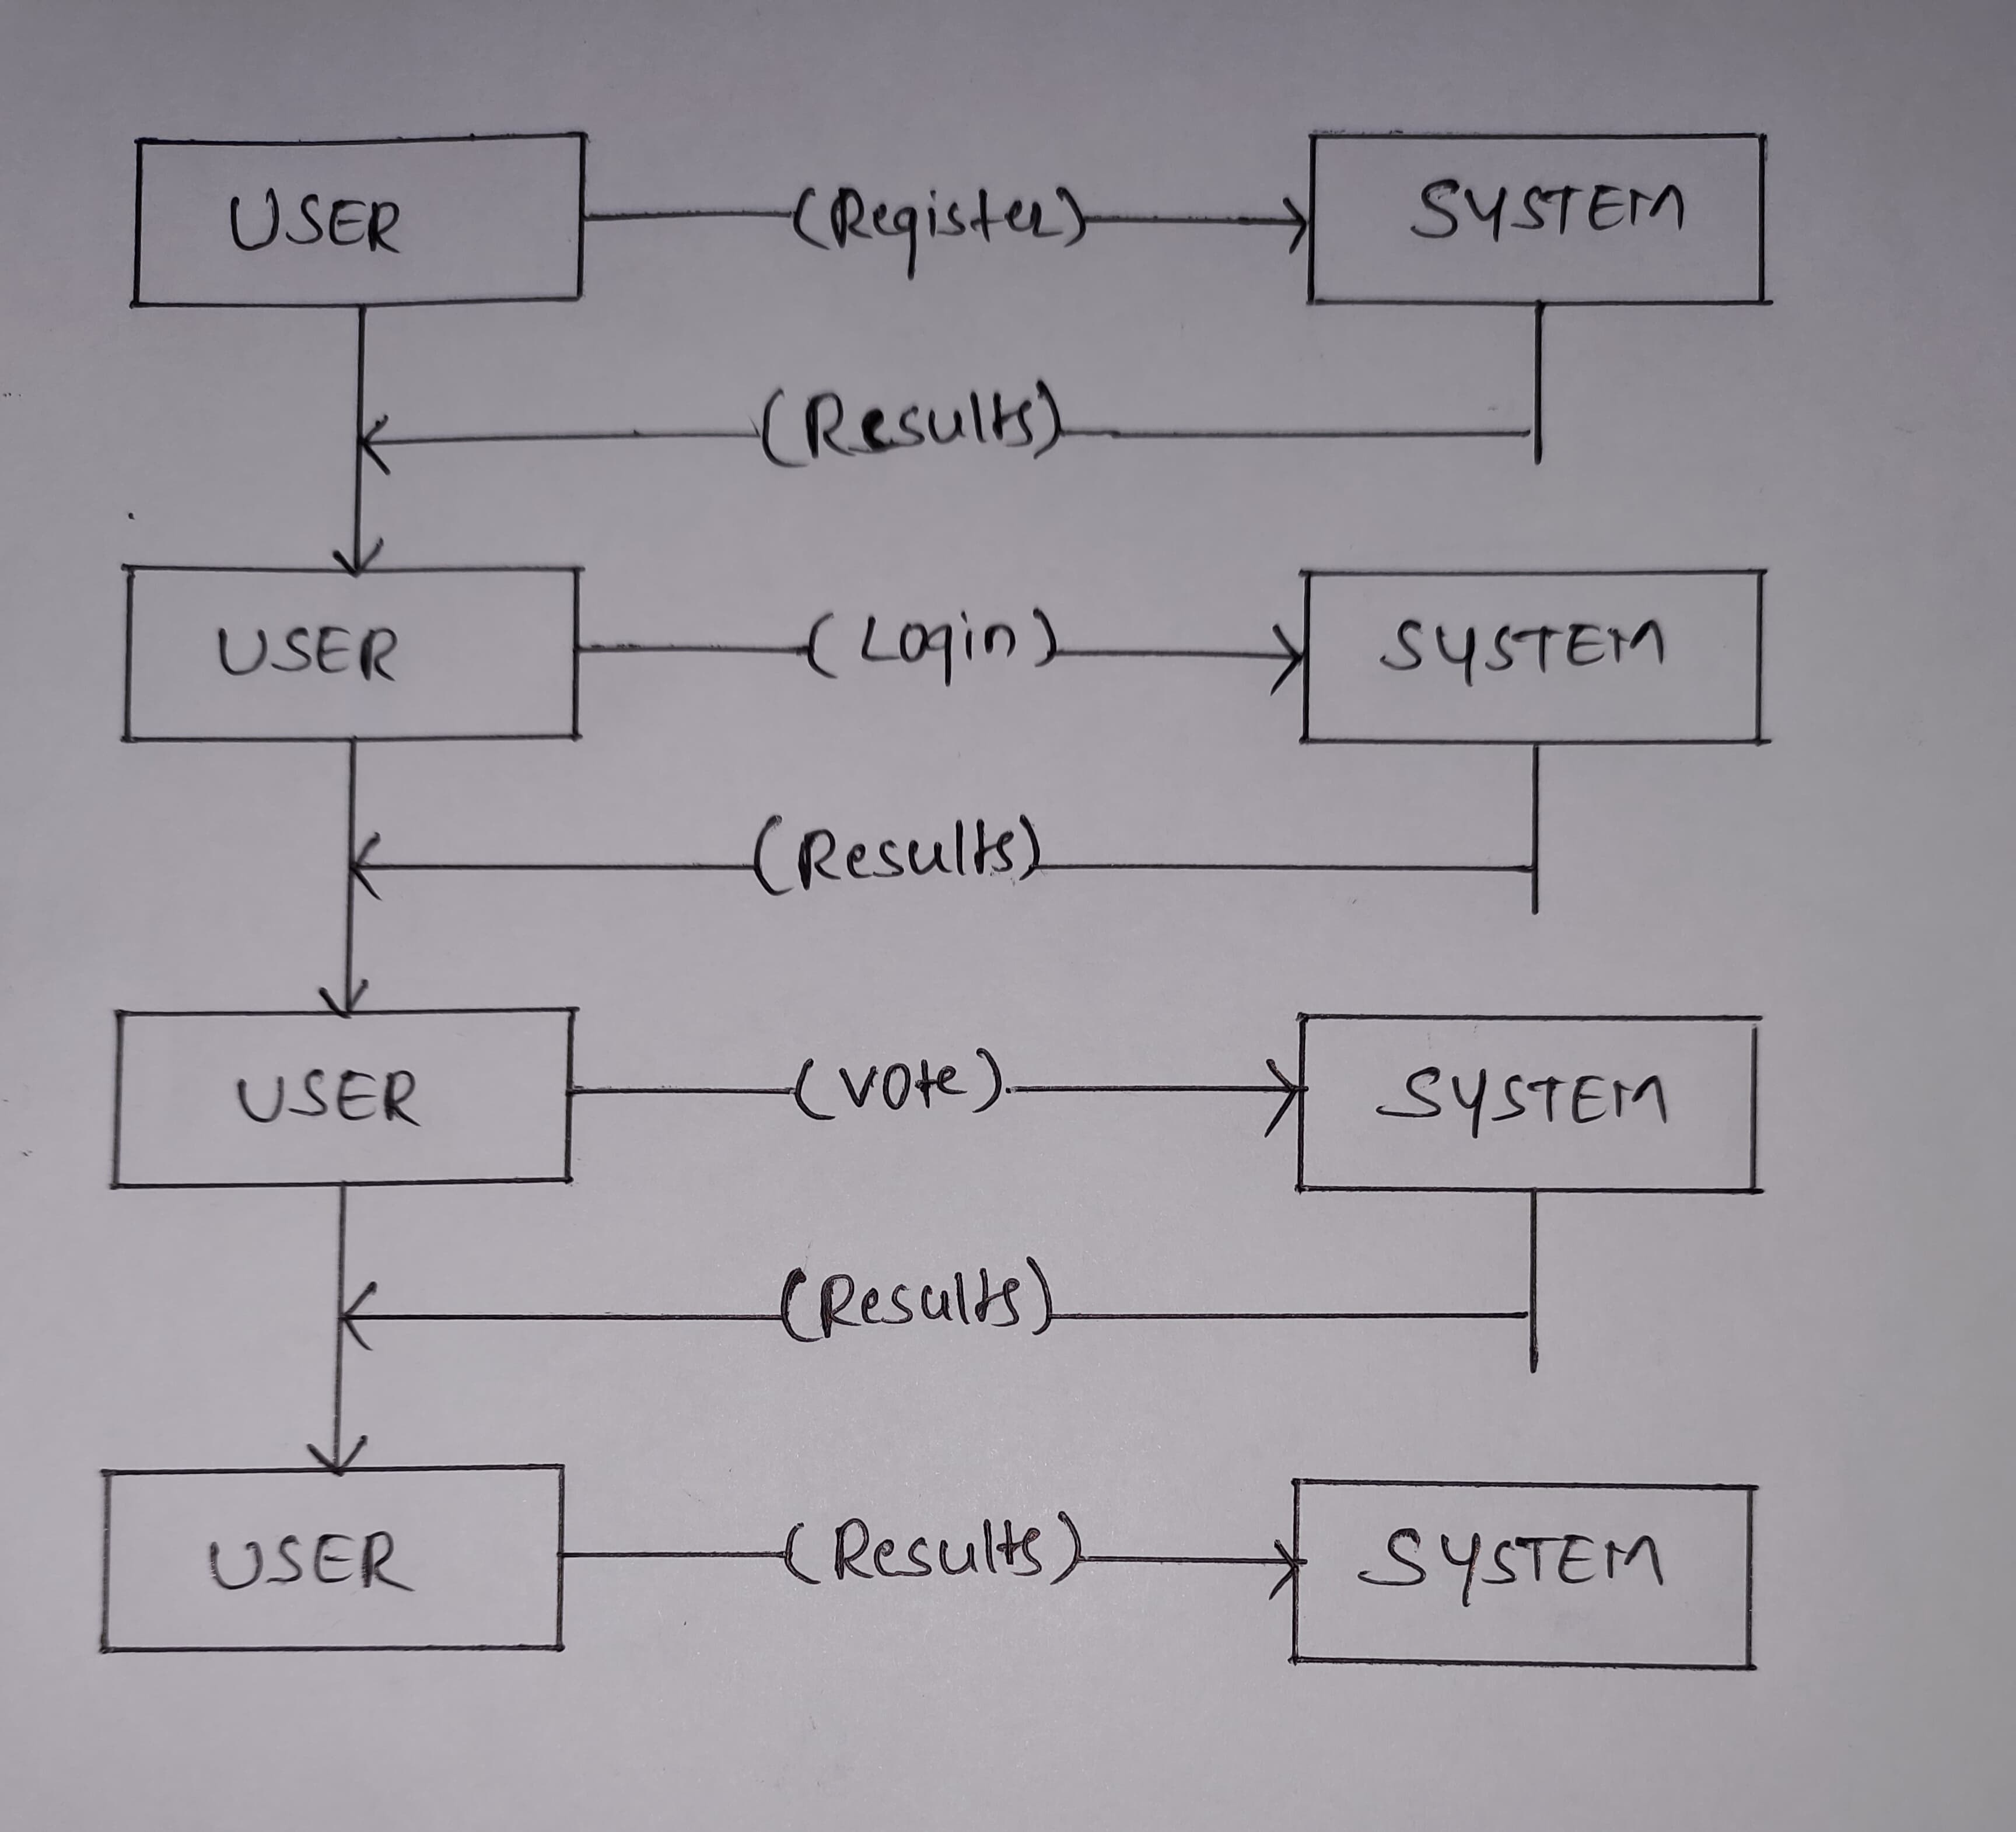 USER (Register) SYSTEM
(Results)
USER (Login) SYSTEM
(Results)
USER (Vote) SYSTEM
(Results)
USER (Results) SYSTEM